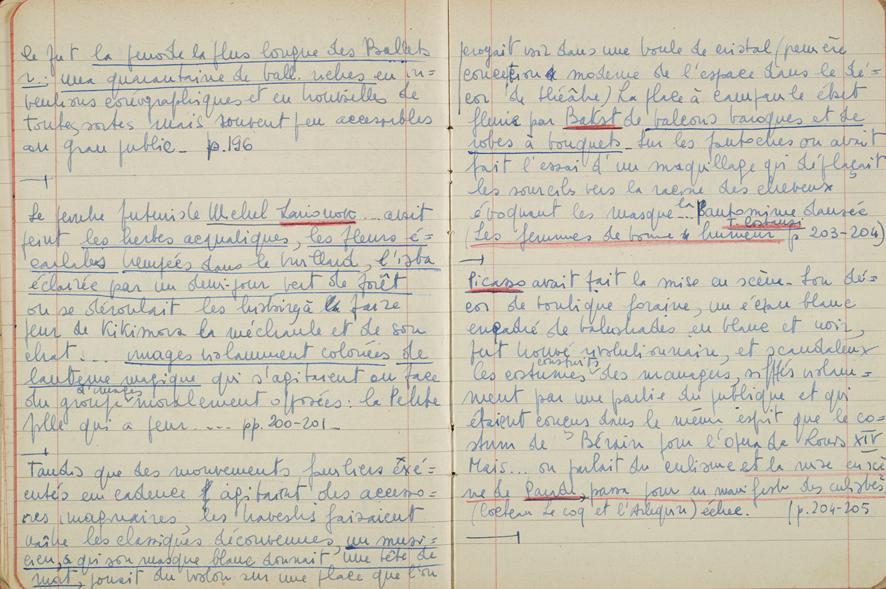 ce fut la periode la plus longue des Ballets
r.: una quarantaine de ball. riches en in=
ventions coreographiques et en nouvelles de
toutes sortes mais souvent peu accessibles
au gran public_ p.196
Le peintre futuriste Michel Larionow... avait
peint les herbes acquatiques, les fleurs é=
carlates trempées dans le brouillard, l'isba
éclairée par un demi-jour vert de forêt
où se déroulait les histoires à faire
peur de Kikimora la méchante et de son
chat... images violamment coloriées de
lanterne magique qui s'agitaient en face
du groupe d'images moralement opposées: la Petite
fille qui a peur.... pp. 200-201_
Tandis que des mouvements familiers éxé=
cutés en cadence agitaient des accesso=
ires imaginaires, les travestis faisaient
les classiques découvennes, un musi=
cien, à qui son masque blanc donnait une tête de
mort, jouait du violon sur une place que l'on
percyait voir dans une boule de cristal (première
conception moderne de l'espace dans le dé=
cor de théâtre) La place à campanile était
fleurie par Bakst de balcons baroques et de
robes à bouquets_ Sur les fantoches on avait
fait l'essai d'un maquillage qui déplaçait
les sourcils vers la racine des cheveux
évoquant les masque... la Pantomime dansée
(Les femmes de bonne humeur p 203-204)
Picasso avait fait la mise en scène_ Son dé=
cor de boutique foraine, un écran blanc
encadré de balustrades en blanc et noir,
fut trouvé révolutionnaire, et scandaleux
Ces costumes construits des managers, sifflés violam=
ment par une partie du publique et qui
étaient concus dans le même esprit que le co=
stum de Bérain pour l'opera de Louis XIV
Mais... on parlait du cubisme et la mise en scè
ne de Parade, passa pour un manifeste des cubistes
(Cocteau Le coq et l'Arlequin) échec. (p.204-205